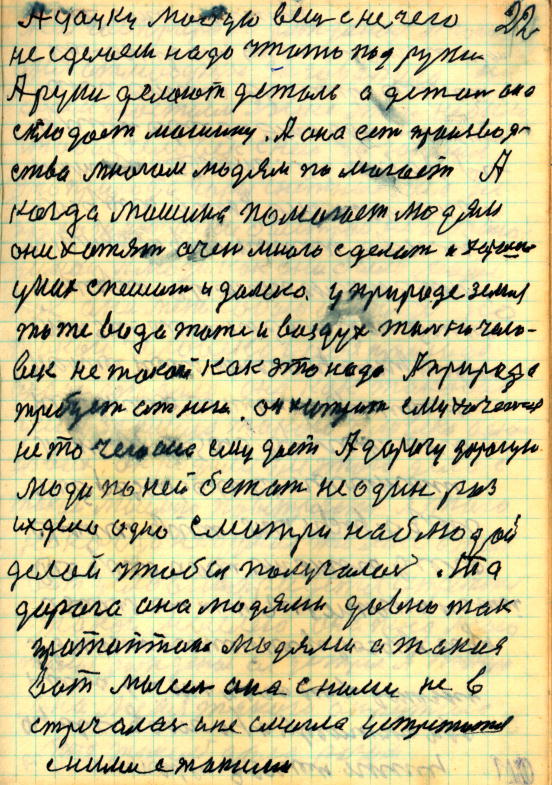 22
А дочку любую вещ с нечего
не сделаеш надо чтоть под руки
А руки делоют детоль а детали она
складают машину. А она ест производ-
ства многом людям помогает А
когда машина помогает людям
они хотят очен много сделат и хороше
умах спешат и далеко. у природе земля
тоже вода тоже и воздух чело-
век не такой как это надо А природа
требует от нево. он хитрит ему хочется
не то чего она ему дает А дорогу дорогую
люди по ней бегат не один раз
их дело одно смотри наблюдой
делой чтобы получалос. Та
дорога она людями довно так
людями а такия
вот мысел она с ними не в
стричалас и не смогла устретится
с ними с такими